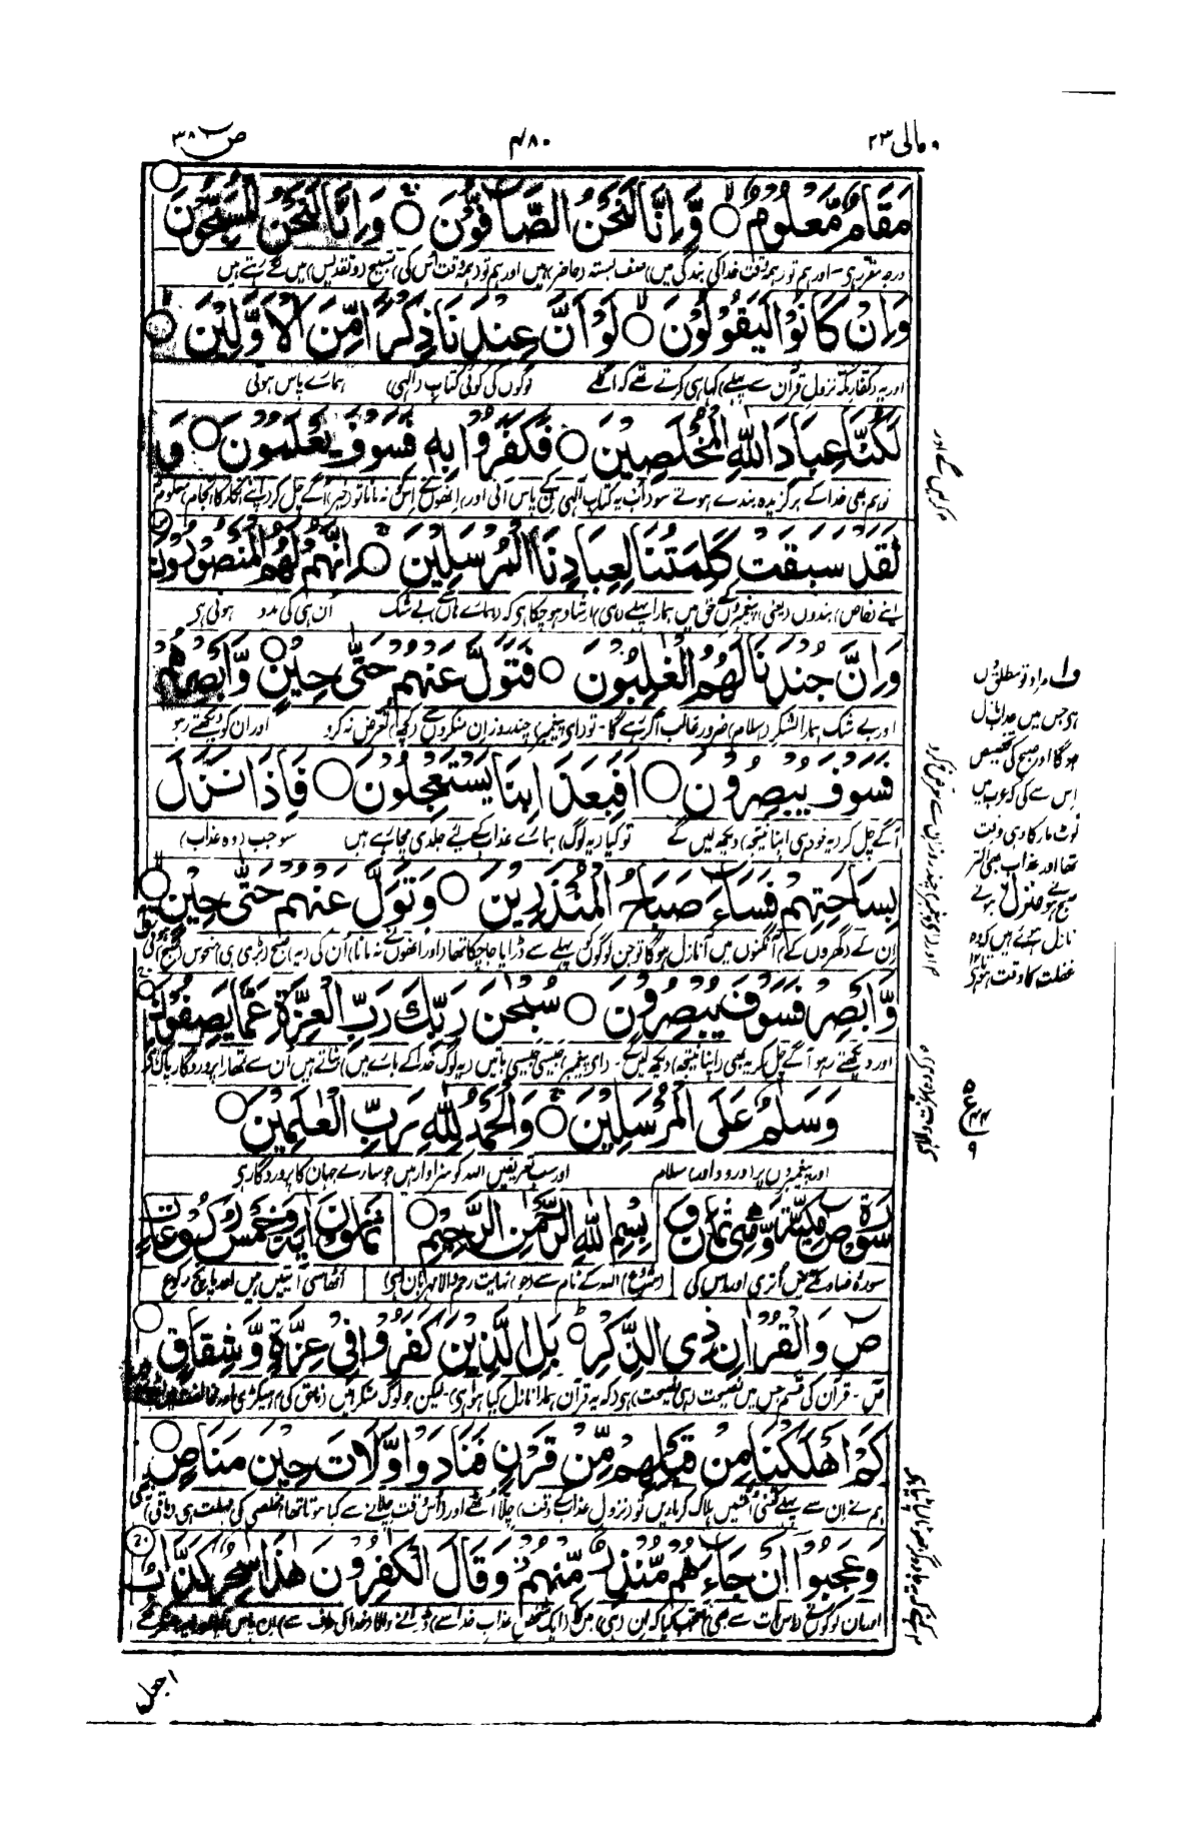 ومالی ٢٣
٤٨٠
ص ٣٨
مَقَامٌ مَّعْلُوْمٌ ○ وَّاِنَّا لَنَحْنُ الصَّآفُّوْنَ ○ وَاِنَّا لَنَحْنُ الْمُسَبِّحُوْنَ
درجہ مقرر ہی۔ اور ہم تو ہمہ وقت خدا کی بندگی میں) صف بستہ (حاضر) ہیں اور ہم تو (ہمہ وقت اُس کی) تسبیح (و تقدیس) میں لگے رہتے ہیں
وَاِنْ كَانُوْا لَيَقُوْلُوْنَ ○ لَوْ اَنَّ عِنْدَنَا ذِكْرًا مِّنَ الْاَوَّلِيْنَ ○
اور یہ (کفار مکہ نزول قرآن سے پہلے) کہا ہی کرتے تھے کہ اگلے لوگوں کی کوئی کتاب (الٰہی) ہمارے پاس ہوتی
لَكُنَّا عِبَادَ اللّٰهِ الْمُخْلَصِيْنَ ○ فَكَفَرُوْا بِهٖ فَسَوْفَ يَعْلَمُوْنَ ○ وَ
تو ہم بھی خدا کے برگزیدہ بندے ہوتے سو (اب یہ کتاب الٰہی اِن کے پاس آئی اور) انھوں نے اِس کو نہ مانا تو (خیر) آگے چل کر (اپنے انکار کا انجام) معلوم
لَقَدْ سَبَقَتْ كَلِمَتُنَا لِعِبَادِنَا الْمُرْسَلِيْنَ ○ اِنَّهُمْ لَهُمُ الْمَنْصُوْرُوْنَ
اپنے (خاص) بندوں (یعنی) پیغمبروں کے حق میں ہمارا پہلے (ہی) ارشاد ہو چکا ہی کہ (ہمارے ہاں) بے شک اُن ہی کی مدد ہونی ہی
وَاِنَّ جُنْدَنَا لَهُمُ الْغٰلِبُوْنَ ○ فَتَوَلَّ عَنْهُمْ حَتّٰى حِيْنٍ ○ وَّاَبْصِرْهُمْ
اور بے شک ہمارا لشکر (اسلام) ضرور غالب آ کر رہے گا۔ تو (اے پیغمبر) چند روز اِن منکروں سے (کچھ) تعرض نہ کرو اور ان کو دیکھتے رہو
فَسَوْفَ يُبْصِرُوْنَ ○ اَفَبِعَذَابِنَا يَسْتَعْجِلُوْنَ ○ فَاِذَا نَزَلَ
آگے چل کر (یہ خود ہی اپنا نتیجہ) دیکھ لیں گے تو کیا (یہ لوگ) ہمارے عذاب کے لئے جلدی مچا رہے ہیں سو جب (وہ عذاب)
بِسَاحَتِهِمْ فَسَآءَ صَبَاحُ الْمُنْذَرِيْنَ ○ وَتَوَلَّ عَنْهُمْ حَتّٰى حِيْنٍ ○
اِن کے (گھروں کے) آنگنوں میں آ نازل ہو گا تو جن لوگوں کو پہلے سے ڈرایا جا چکا تھا (اور انھوں نے نہ مانا) اُن کی (یہ) صبح (بڑی ہی) منحوس (صبح) ہوگی
وَّاَبْصِرْ فَسَوْفَ يُبْصِرُوْنَ ○ سُبْحٰنَ رَبِّكَ رَبِّ الْعِزَّةِ عَمَّا يَصِفُوْنَ
اور دیکھتے رہو آگے چل کر یہ بھی (اپنا نتیجہ) دیکھ لیں گے۔ (اے پیغمبر) جیسی جیسی باتیں (یہ لوگ خدا کے بارے میں) بناتے ہیں اُن سے تمھارا پروردگار پاک
وَسَلٰمٌ عَلَى الْمُرْسَلِيْنَ ○ وَالْحَمْدُ لِلّٰهِ رَبِّ الْعٰلَمِيْنَ ○
اور پیغمبروں پر (درود اور) سلام اور سب تعریفیں اللہ کو سزاوار ہیں جو سارے جہان کا پروردگار ہی
سُوْرَةُ صٓ مَكِّيَّةٌ وَّهِيَ ثَمَانٌ وَّ | بِسْمِ اللّٰهِ الرَّحْمٰنِ الرَّحِيْمِ ○ | ثَمَانُوْنَ اٰيَةً وَّخَمْسُ رُكُوْعَاتٍ
سورۂ صاد مکے میں اُتری اور اس کی | (شروع) اللہ کے نام سے (جو) نہایت رحم والا مہربان (ہی) | اٹھاسی آیتیں ہیں اور پانچ رکوع
صٓ وَالْقُرْاٰنِ ذِى الذِّكْرِ ○ بَلِ الَّذِيْنَ كَفَرُوْا فِيْ عِزَّةٍ وَّشِقَاقٍ ○
صٓ۔ قرآن کی قسم جس میں نصیحت (ہی نصیحت) ہی (کہ یہ قرآن ہمارا نازل کیا ہوا ہی)۔ لیکن جو لوگ منکر ہیں (ناحق کی) ہیکڑی اور
كَمْ اَهْلَكْنَا مِنْ قَبْلِهِمْ مِّنْ قَرْنٍ فَنَادَوْا وَّلَاتَ حِيْنَ مَنَاصٍ ○
ہم نے اِن سے پہلے کتنی اُمتیں ہلاک کر ماریں تو (نزول عذاب کے وقت) چلّا اُٹھے اور (اُس وقت چلّانے سے کیا ہوتا تھا) مخلصی کی مہلت ہی (باقی)
وَعَجِبُوْۤا اَنْ جَآءَهُمْ مُّنْذِرٌ مِّنْهُمْ وَقَالَ الْكٰفِرُوْنَ هٰذَا سٰحِرٌ كَذَّابٌ
اور ان لوگوں نے (اِس بات سے بھی) تعجب کیا کہ اِن (ہی) میں کا (ایک شخص عذاب خدا سے) ڈرانے والا (خدا کی طرف سے) اِن پاس
کریں گے اور
ف١ مراد تو مطلق دن
ہی جس میں عذاب نازل
ہوگا اور صبح کی تخصیص
اِس لئے کی کہ عرب میں
لوٹ مار کا وہی وقت
تھا اور عذاب بھی اکثر
صبح ہی نازل ہوئے
نازل ہوئے ہیں کہ وہ
غفلت کا وقت ہی
٥
ع
٤٤
٩
اجعل